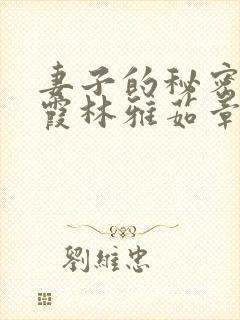 妻子的秘密
霞林雅茹章
劉維忠